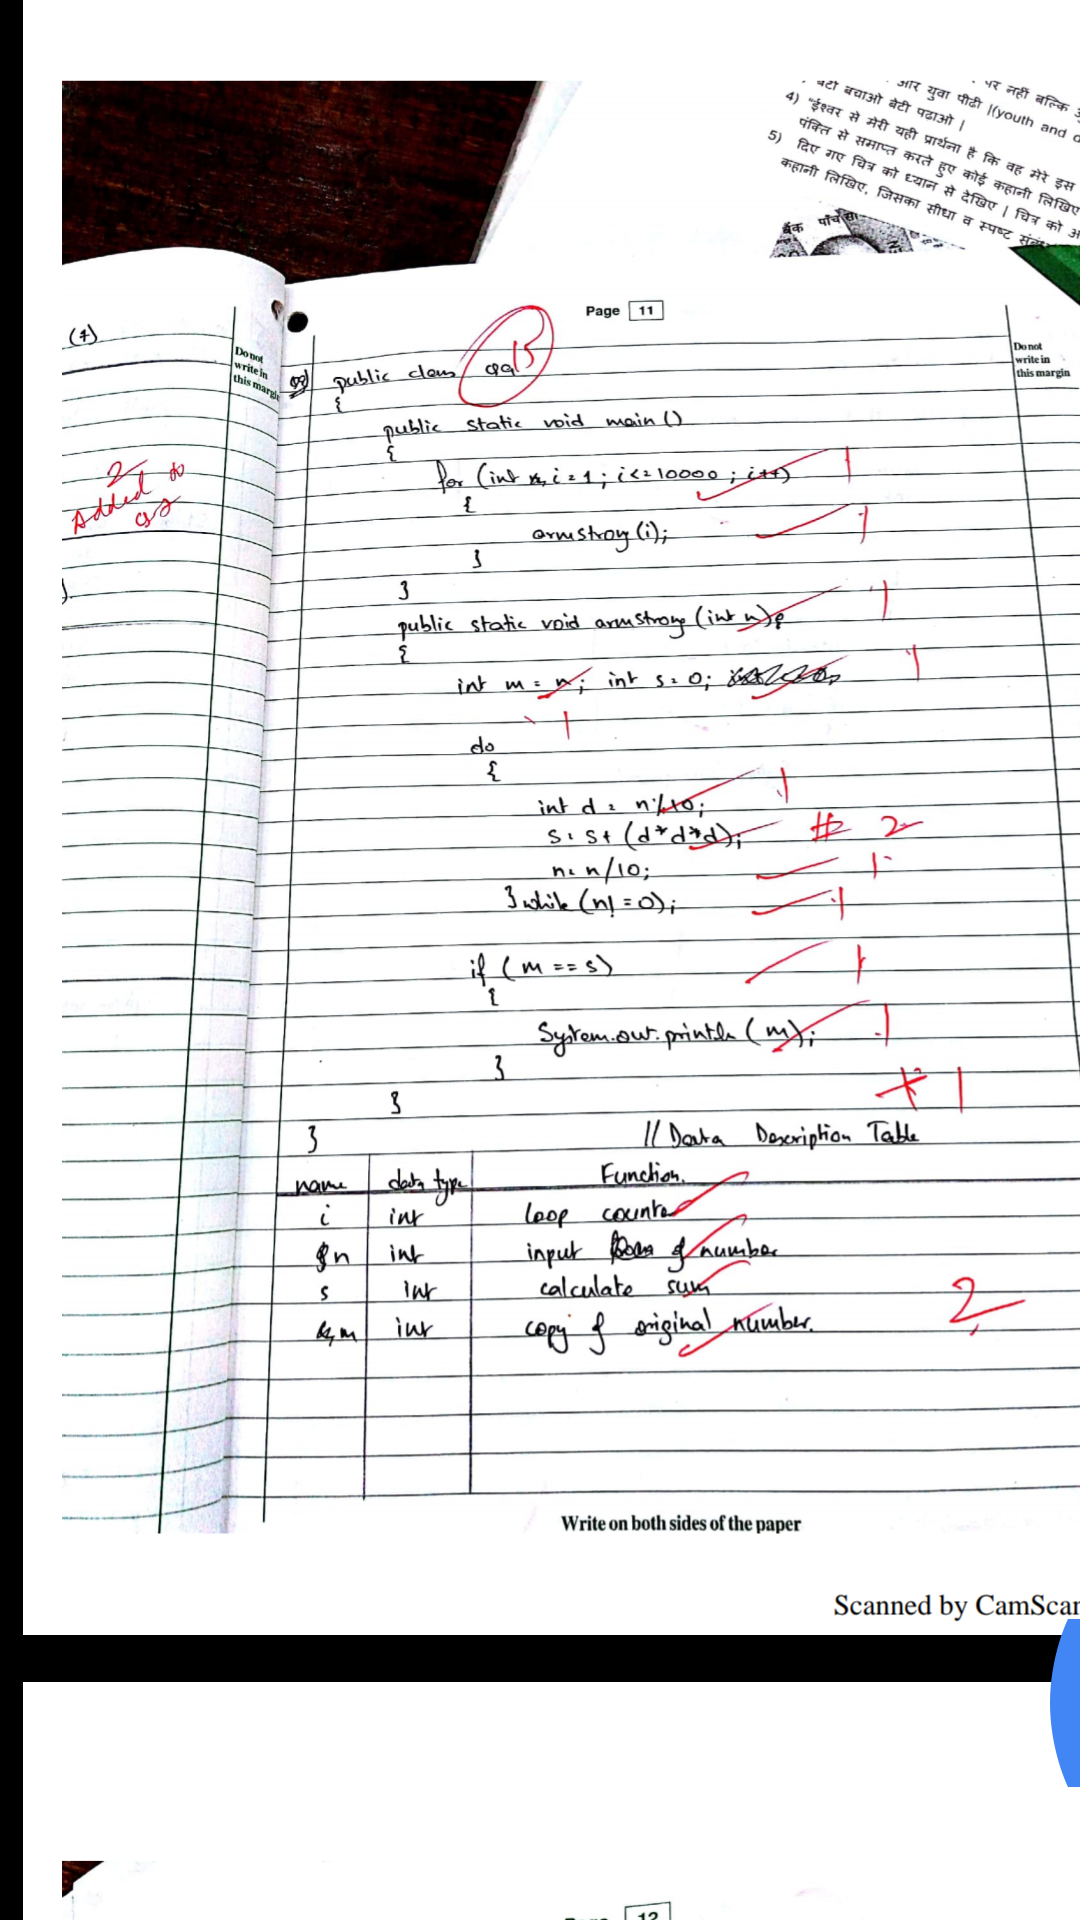 पर नहीं बल्कि
और युवा पीढी |(youth and
बेटी बचाओ बेटी पढाओ |
4) "ईश्वर से मेरी यही प्रार्थना है कि वह मेरे इस
पंक्ति से समाप्त करते हुए कोई कहानी लिखिए
5) दिए गए चित्र को ध्यान से देखिए | चित्र को
कहानी लिखिए, जिसका सीधा व स्पष्ट
बैंक
Page 11
(7)
Do not
write in
this margin
Do not
write in
this margin
15
public class
{
public static void main ()
{
for (int i=1; i<=10000; i++) 1
{
armstrong (i); 1
}
}
public static void armstrong (int n) 1
{
int m = n; int s=0; 1
1
2
Added to
do
{
int d = n%10; 1
s=s+ (d*d*d); 2
n=n/10; 1
}while (n!=0); 1
if (m==s) 1
{
System.out.println (m); 1
}
+1
}
} // Data Description Table
name data type Function.
i int loop counter
n int input number
s int calculate sum
m int copy of original number.
2
Write on both sides of the paper
Scanned by CamScan
12